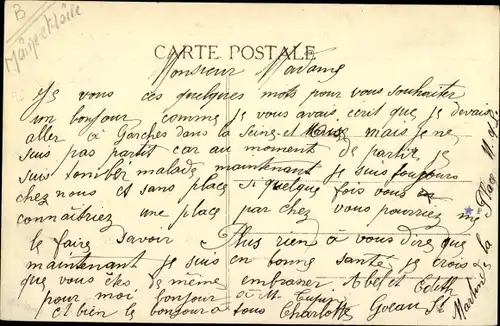 B
Maine et Loire
CARTE POSTALE
Monsieur Madame
Je vous ces quelques mots pour vous souhaiter
un bonjour comme je vous avais écrit que je devais
aller à Garches dans la Seine et mais je ne
suis pas partit car au moment de partir je
suis tombber malade maintenant je suis toujours
chez nous et sans place si quelque fois vous
connaitriez une place par chez vous pourriez me
le faire savoir Plus rien à vous dire que
maintenant je suis en bonne santé je crois
que vous êtes de même embrasser Abel et Edith
pour moi bonjour à M.
et bien le bonjour à tous Charlotte St
Martin de la Place